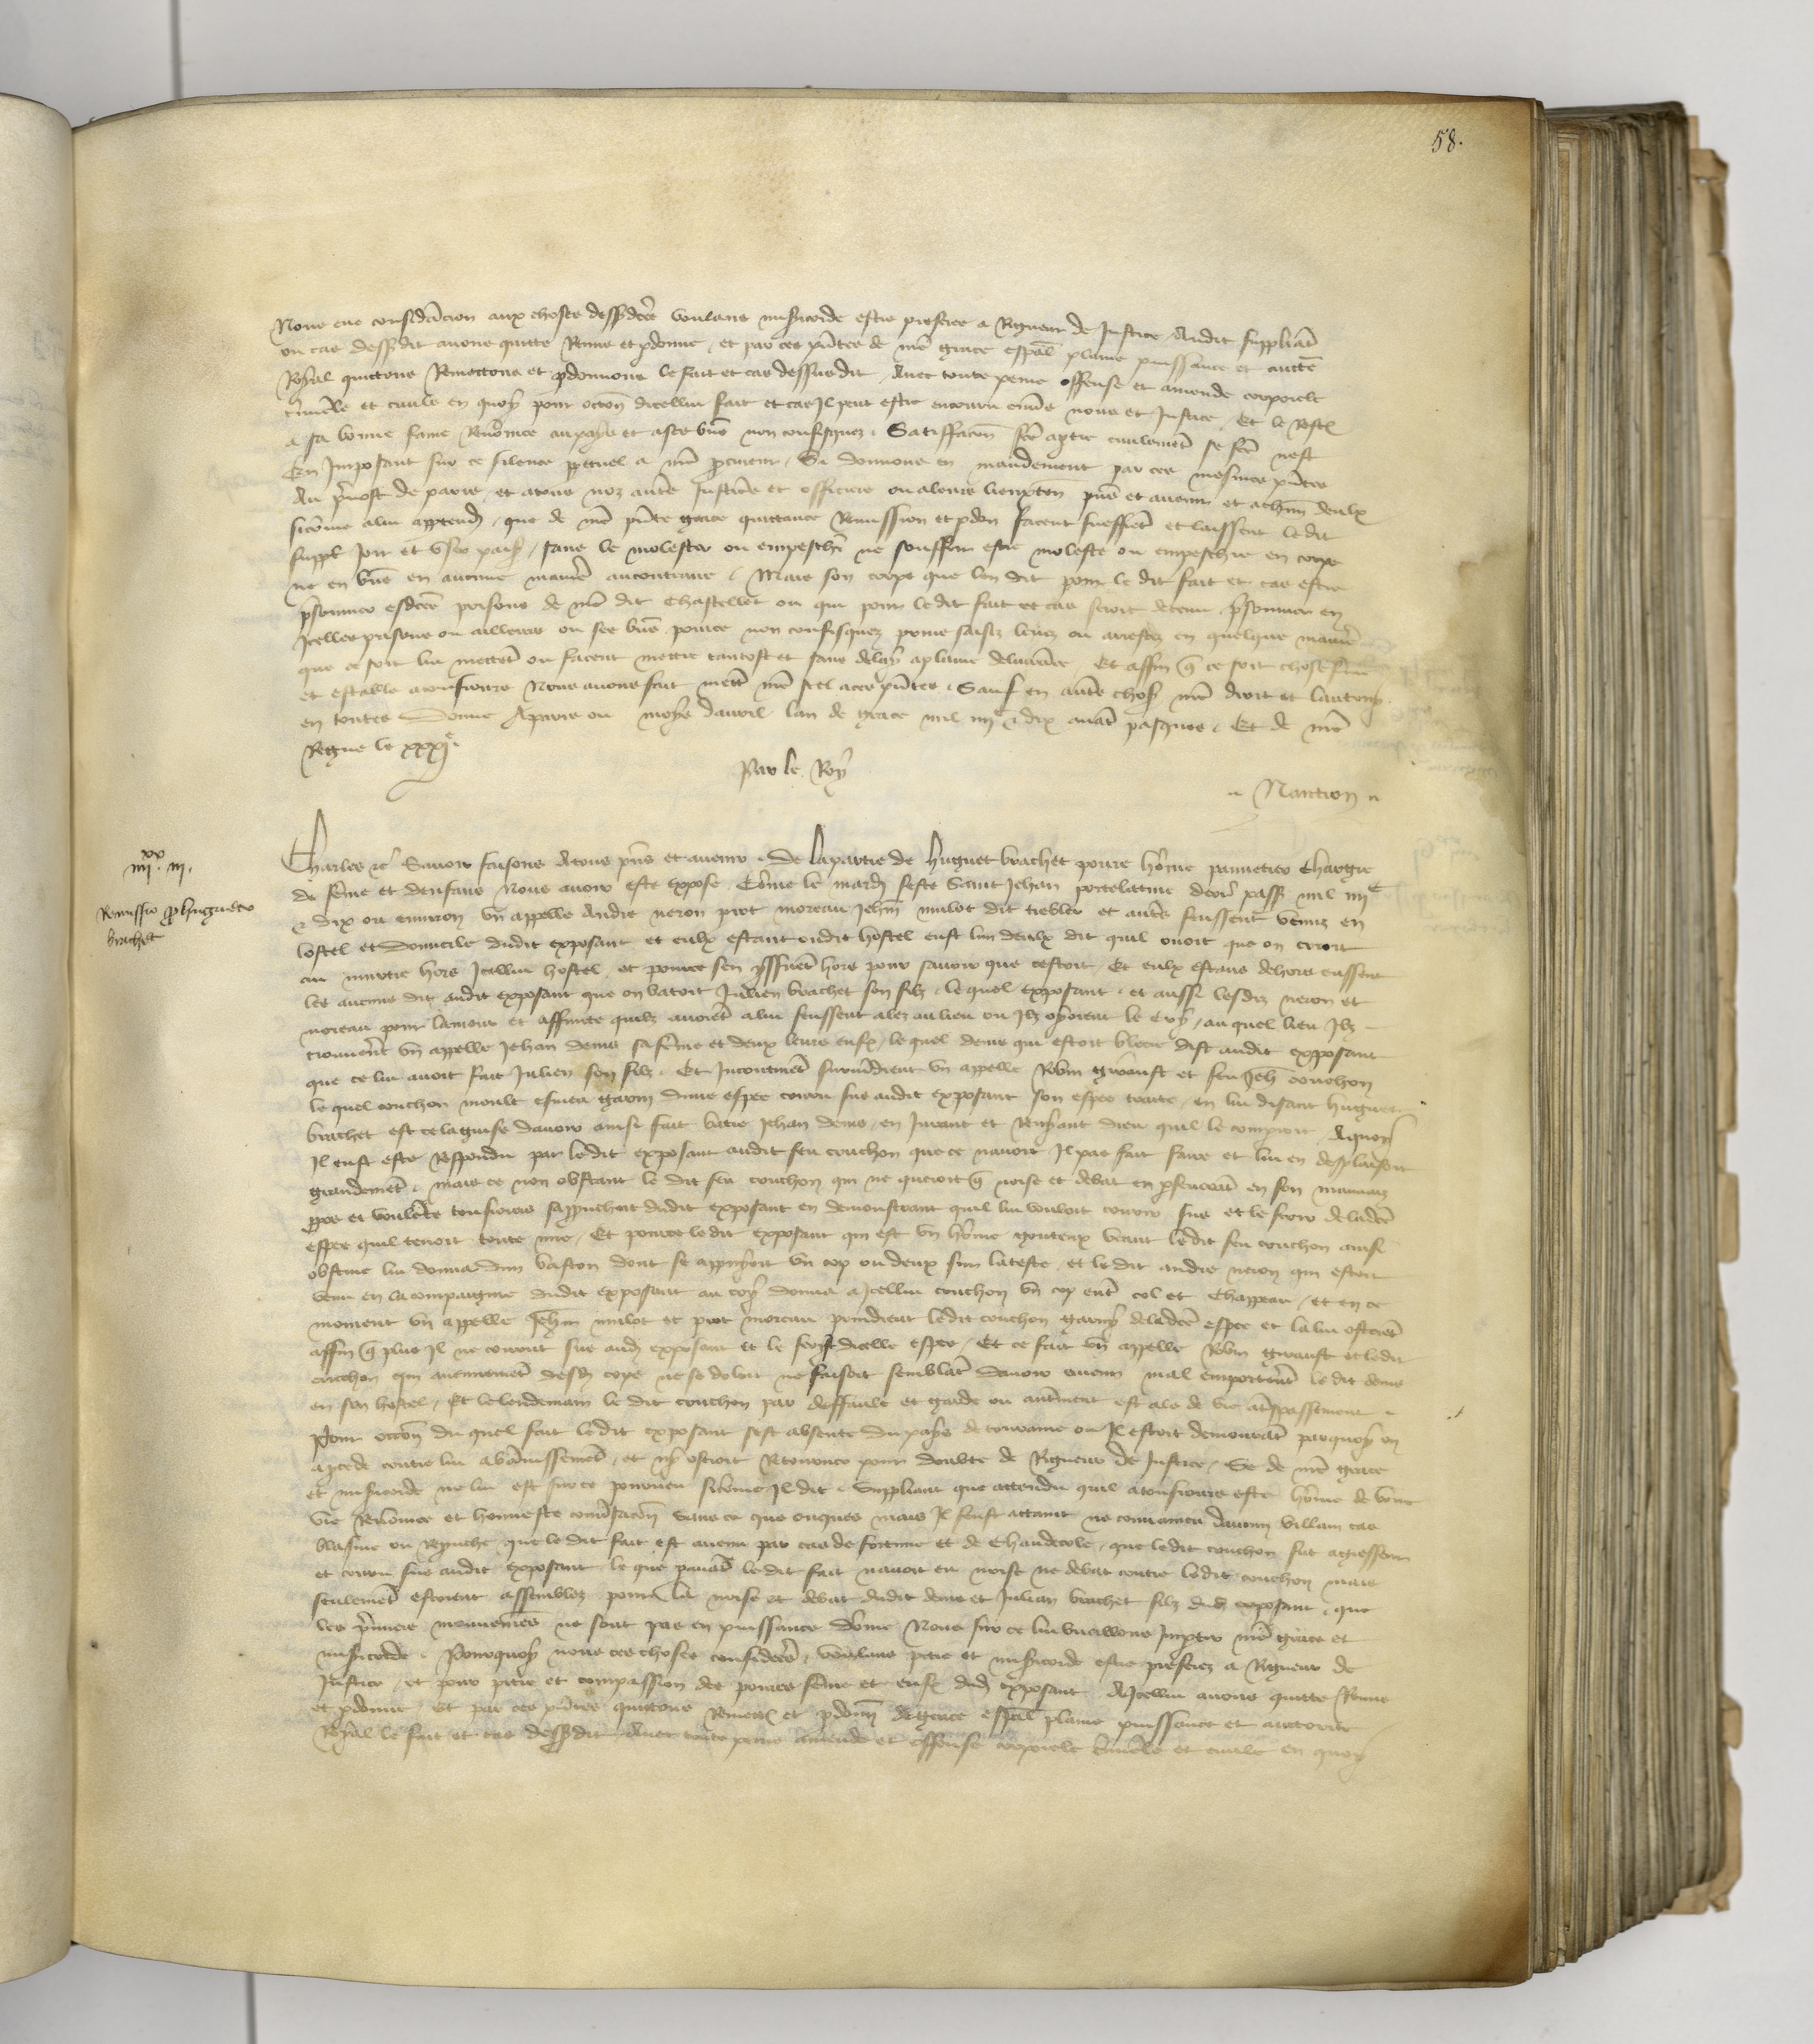 58.
Nous eue consideracion aux choses dessusdictes voulans misericorde estre preferee a Rigueur de Justice Audit suppliant
ou cas dessusdit avons quitte Remis et pardonne, et par ces presentes de nostre grace especial plaine puissance et auctorite
Royal quittons Remettons et pardonnons le fait et cas dessusdit, Avec toute peine offense et amende corporele
criminele et civile en quoy pour occasion dicellui fait et cas Il peut estre encouru envers nous et Justice, Et le Restituons
a sa bonne fame Renommee au pays et a ses biens non confisquez. Satisfaccion faicte a partie civilement se faicte nest
En Imposant sur ce silence perpetuel a nostre procureur, Si donnons en mandement par ces mesmes presentes
Au prevost de paris, et a tous noz autres Justiciers et officiers ou a leurs lieuxtenans presens et avenir et a chascun deulx
sicomme a lui appartendra, que de nostre presente grace quittance Remission et pardon facent sueffrent et laissent le dit
suppliant Joir et user paisiblement, sans le molester ou empescher ne souffrir estre moleste ou empeschie en corps
ne en biens en aucune maniere au contraire, Mais son corps que len dit pour le dit fait et cas estre
prisonnier esdictes prisons de nostre dit Chastellet ou qui pour le dit fait et cas seroit detenu prisonnier en
Icelles prisons ou ailleurs ou ses biens pource non confisquez prins saisiz levez ou arrestez en quelque maniere
que ce soit lui mettent ou facent mettre tantost et sans delay a plaine delivrance, Et affin que ce soit chose ferme
et estable a tousjours Nous avons fait mettre nostre seel a ces presentes, Sauf en autres choses nostre droit et lautruy
en toutes Donne A paris ou moys davril lan de grace mil iiiic et dix avant pasques, Et de nostre
Regne le xxxie
Par le Roy
Nantron
iiiixx. iii.
Remissio pro hugueto
brachet
Charles etc Savoir faisons A tous presens et avenir, De la partie de huguet brachet povre homme pannetier Chargie
de femme et denfans Nous avoir este expose, Comme le mardi feste Saint Jehan portelatine derrenier passe mil iiiic
et dix ou environ un appelle Andre neron perrot moreau Jehan mulot dit tiebler et autres feussent venuz en
lostel et domicile dudit exposant et eulx estant oudit hostel eust lun deulx dit quil ouoit que on crioit
au murtre hors Icellui hostel, et pource sen yssirent hors pour savoir que cestoit, Et eulx estans dehors eussent
les aucuns dit audit exposant que on batoit Julien brachet son filz, le quel exposant, et aussi lesdiz neron et
moreau pour lamour et affinite quilz avoient a lui feussent alez au lieu ou Ilz oyoient le cry, au quel lieu Ilz
trouverent un appelle Jehan denis sa femme et deux leurs enfans, le quel denis qui estoit blecie dist audit exposant
que ce lui avoit fait Julien son filz, Et Incontinent survindrent un appelle Robin girauft et feu Jehan couchon
le quel couchon moult esmeu garni dune espee couru sus audit exposant son espee traite, en lui disant huguet
brachet est ce la guise davoir ainsi fait batre Jehan denis, en Jurant et Renyant dieu quil le comparroit, A quoy
Il eust este Respondu par le dit exposant audit feu couchon que ce navoit Il pas fait faire et lui en desplaisoit
grandement, mais ce non obstant le dit feu couchon qui ne queroit que noise et debat en perseverant en son mauvaiz
propos et voulente tousjours sapprouchoit dudit exposant en demonstrant quil lui vouloit courir sus et le ferir de ladicte
espee quil tenoit toute nue, Et pource ledit exposant qui est un homme gouteux veant le dit feu couchon ainsi
obstine lui donna dun baston dont se appuyoit un cop ou deux sur la teste, et le dit andre neron qui estoit
venu en la compaignie dudit exposant au cry donna a Icellui couchon un cop entre col et Chappeau, et en ce
moment un appelle Jehan mulot et perrot moreau prindrent ledit couchon garny de ladicte espee et la lui osterent
affin que plus Il ne courust sus audit exposant et le ferist dicelle espee, Et ce fait un appelle Robin girauft et ledit
couchon qui aucunement desdiz cops ne se doloit ne faisoit semblant davoir aucun mal emporterent le dit denis
en son hostel, Et le lendemain le dit couchon par deffault de garde ou autrement est ale de vie a trespassement
Pour occasion du quel fait ledit exposant sest absente du pays de touraine ou Il estoit demourant parquoy on
a procede contre lui a banissement, et ny oseroit Retourner pour doubte de Rigueur de Justice, Se de nostre grace
et misericorde ne lui est sur ce pourveu sicomme Il dit, Suppliant que attendu quil a tousjours este homme de bonne
vie Renommee et honneste conversacion sans ce que onques mais Il feust attaint ne convaincu daucun villain cas
blasme ou Reprouche, que le dit fait est avenu par cas de fortune et de Chaudecole, que ledit couchon fut agresseur
et couru sus audit exposant, le que paravant le dit fait navoit eu noise ne debat contre ledit couchon mais
seulement estoient assemblez pour la noise et debat dudit denis et Julian brachet filz dudit exposant, que
les premiers mouvemens ne sont pas en puissance domme Nous sur ce lui vueillons Impartir nostre grace et
misericorde, Pourquoy nous ces choses considerees, voulans pitie et misericorde estre preferez a Rigueur de
Justice, et pour pitie et compassion des povres femme et enfans dudit exposant A Icellui avons quitte Remis
et pardonne, et par ces presentes quittons Remettons et pardonnons de grace especial plaine puissance et auctorite
Royal le fait et cas dessusdit Avec toute peine amende et offense corporele criminele et civile en quoy